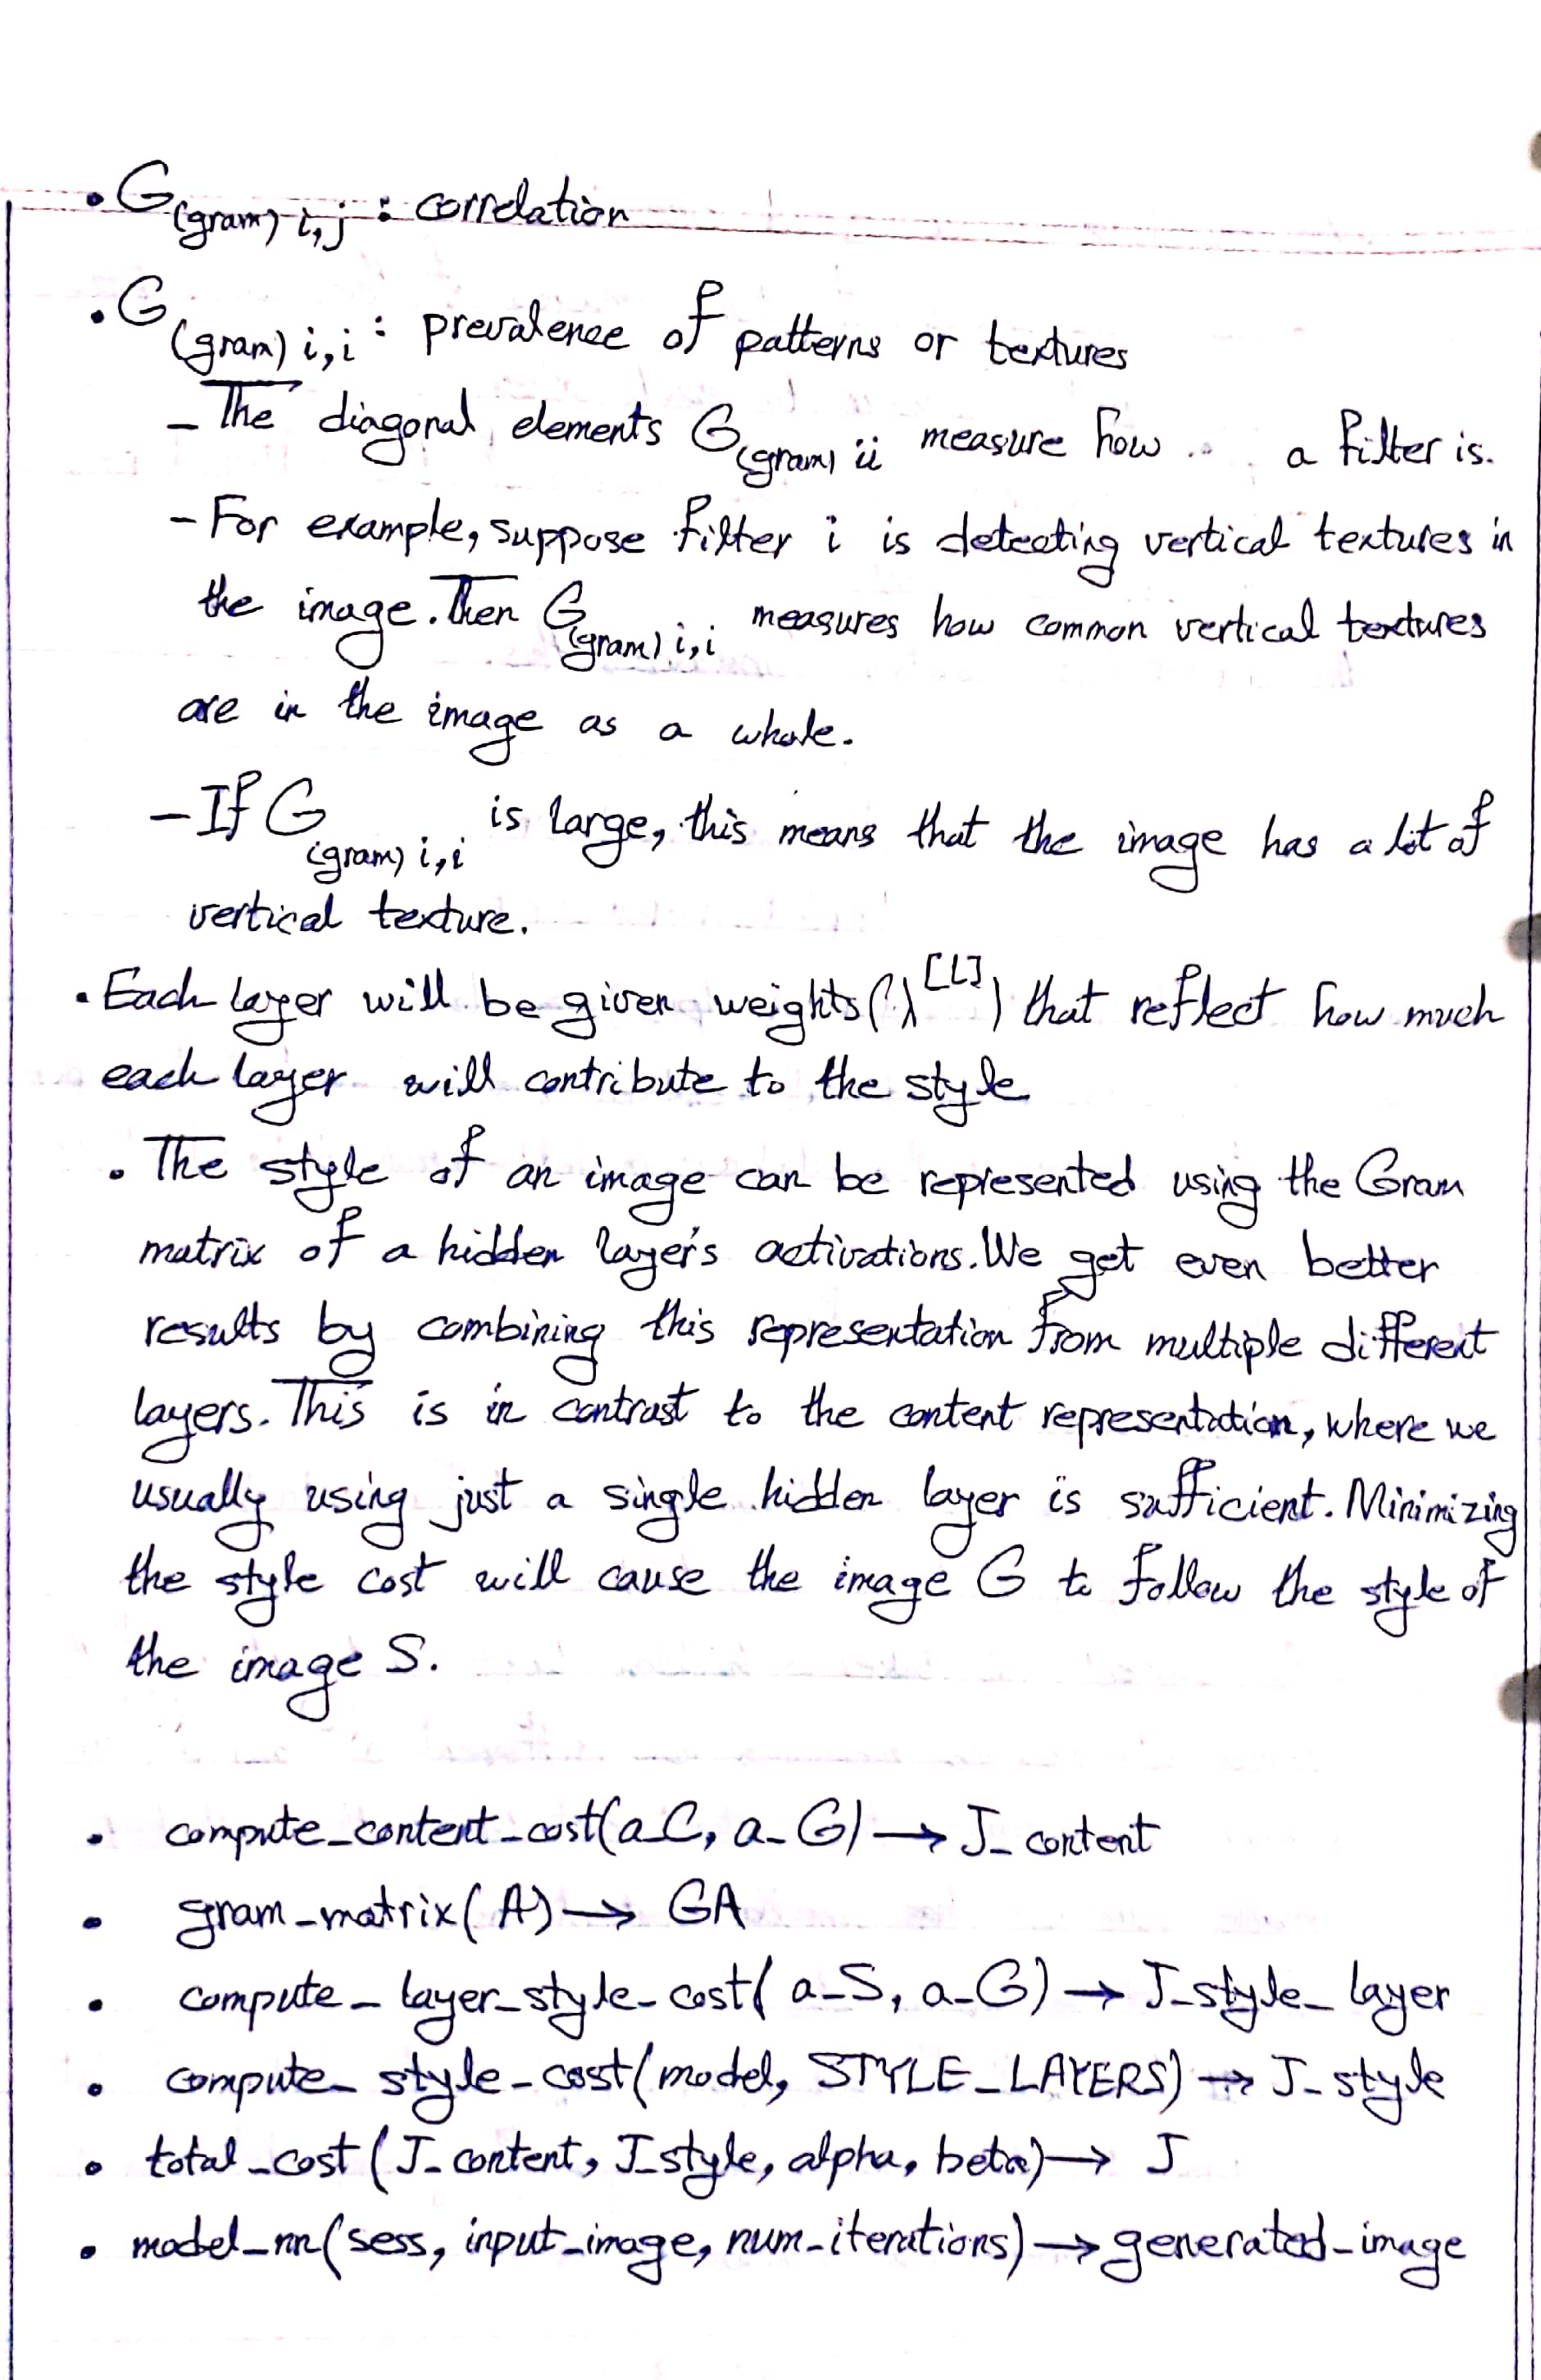 • G(gram) i,j : correlation
• G(gram) i,i : prevalence of patterns or textures
– The diagonal elements G(gram) ii measure how .. . a filter is.
– For example, suppose filter i is detecting vertical textures in
the image. Then G(gram) i,i measures how common vertical textures
are in the image as a whole.
– If G(gram) i,i is large, this means that the image has a lot of
vertical texture.
• Each layer will be given weights (λ[L]) that reflect how much
each layer will contribute to the style
• The style of an image can be represented using the Gram
matrix of a hidden layer's activations. We get even better
results by combining this representation from multiple different
layers. This is in contrast to the content representation, where we
usually using just a single hidden layer is sufficient. Minimizing
the style cost will cause the image G to follow the style of
the image S.
• compute_content_cost(a_C, a_G) → J_content
• gram_matrix(A) → GA
• compute_layer_style_cost(a_S, a_G) → J_style_layer
• compute_style_cost(model, STYLE_LAYERS) → J_style
• total_cost(J_content, J_style, alpha, beta) → J
• model_nn(sess, input_image, num_iterations) → generated_image